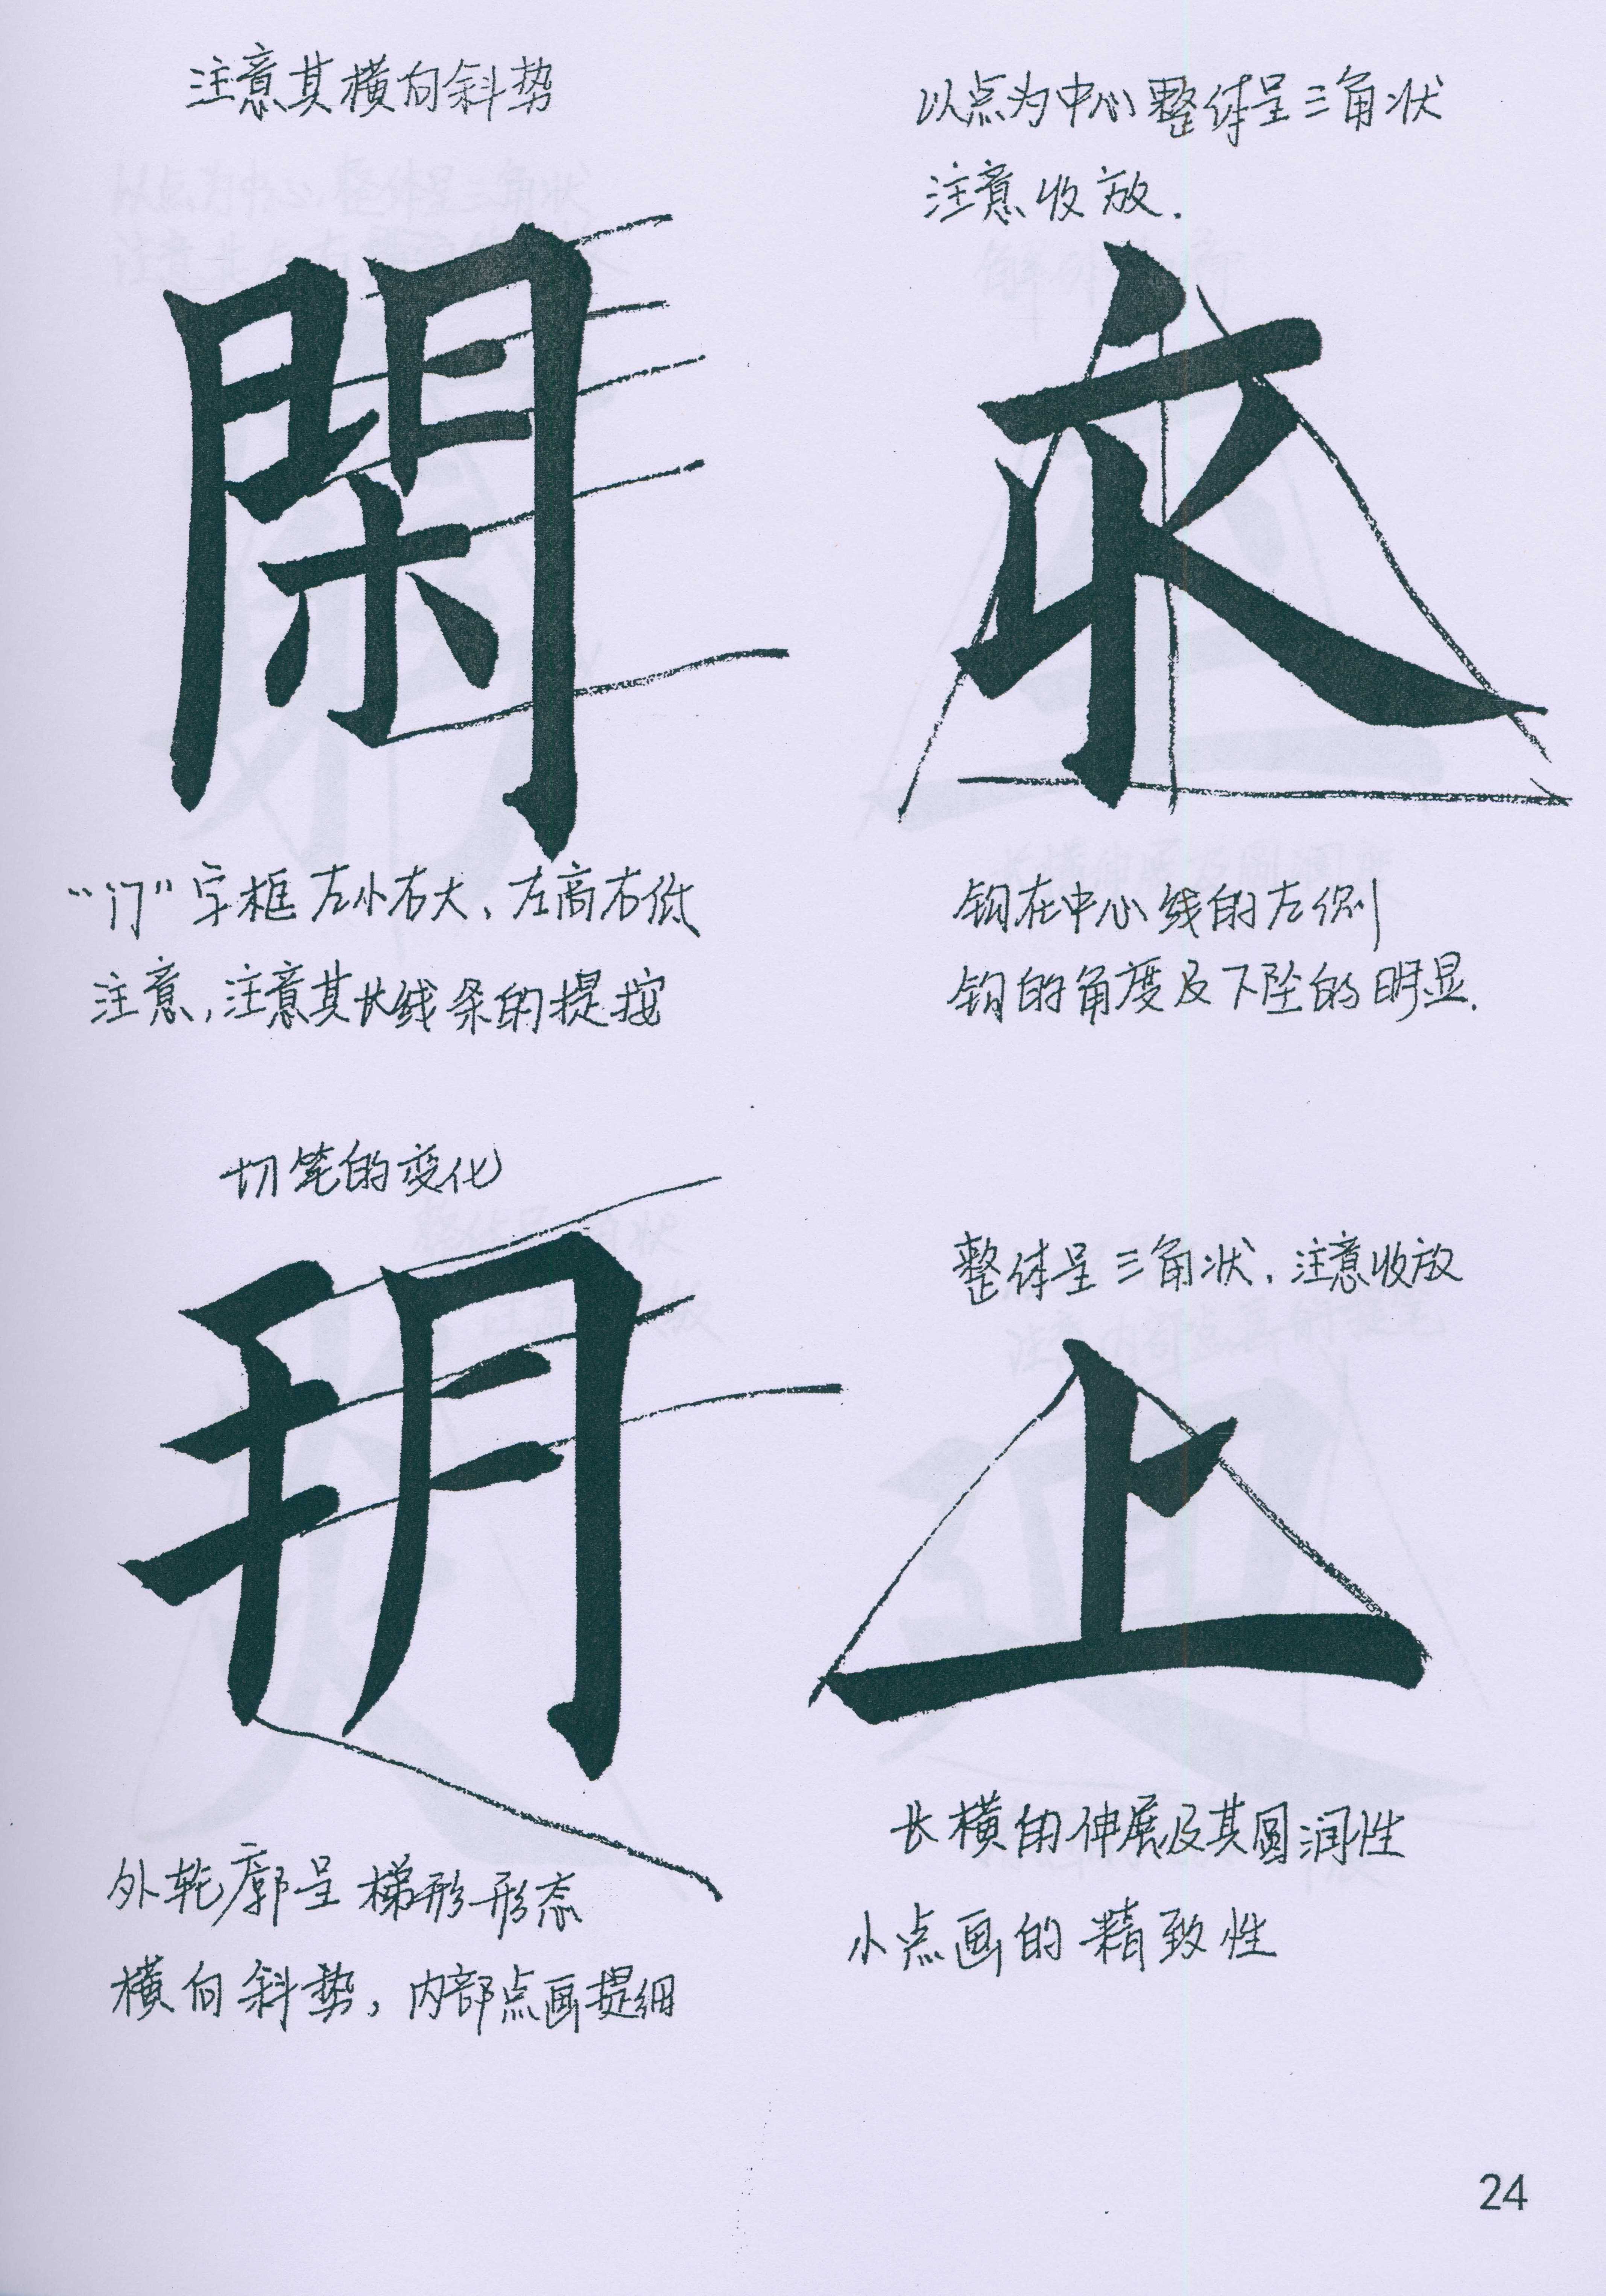 注意其横向斜势
閑
“门”字框左小右大、左高右低
注意,注意其长线条的提按
以点为中心整体呈三角状
注意收放.
永
钩在中心线的左侧
钩的角度及下坠的明显.
切笔的变化
外轮廓呈梯形形态
横向斜势,内部点画提细
整体呈三角状,注意收放
上
长横的伸展及其圆润性
小点画的精致性
24